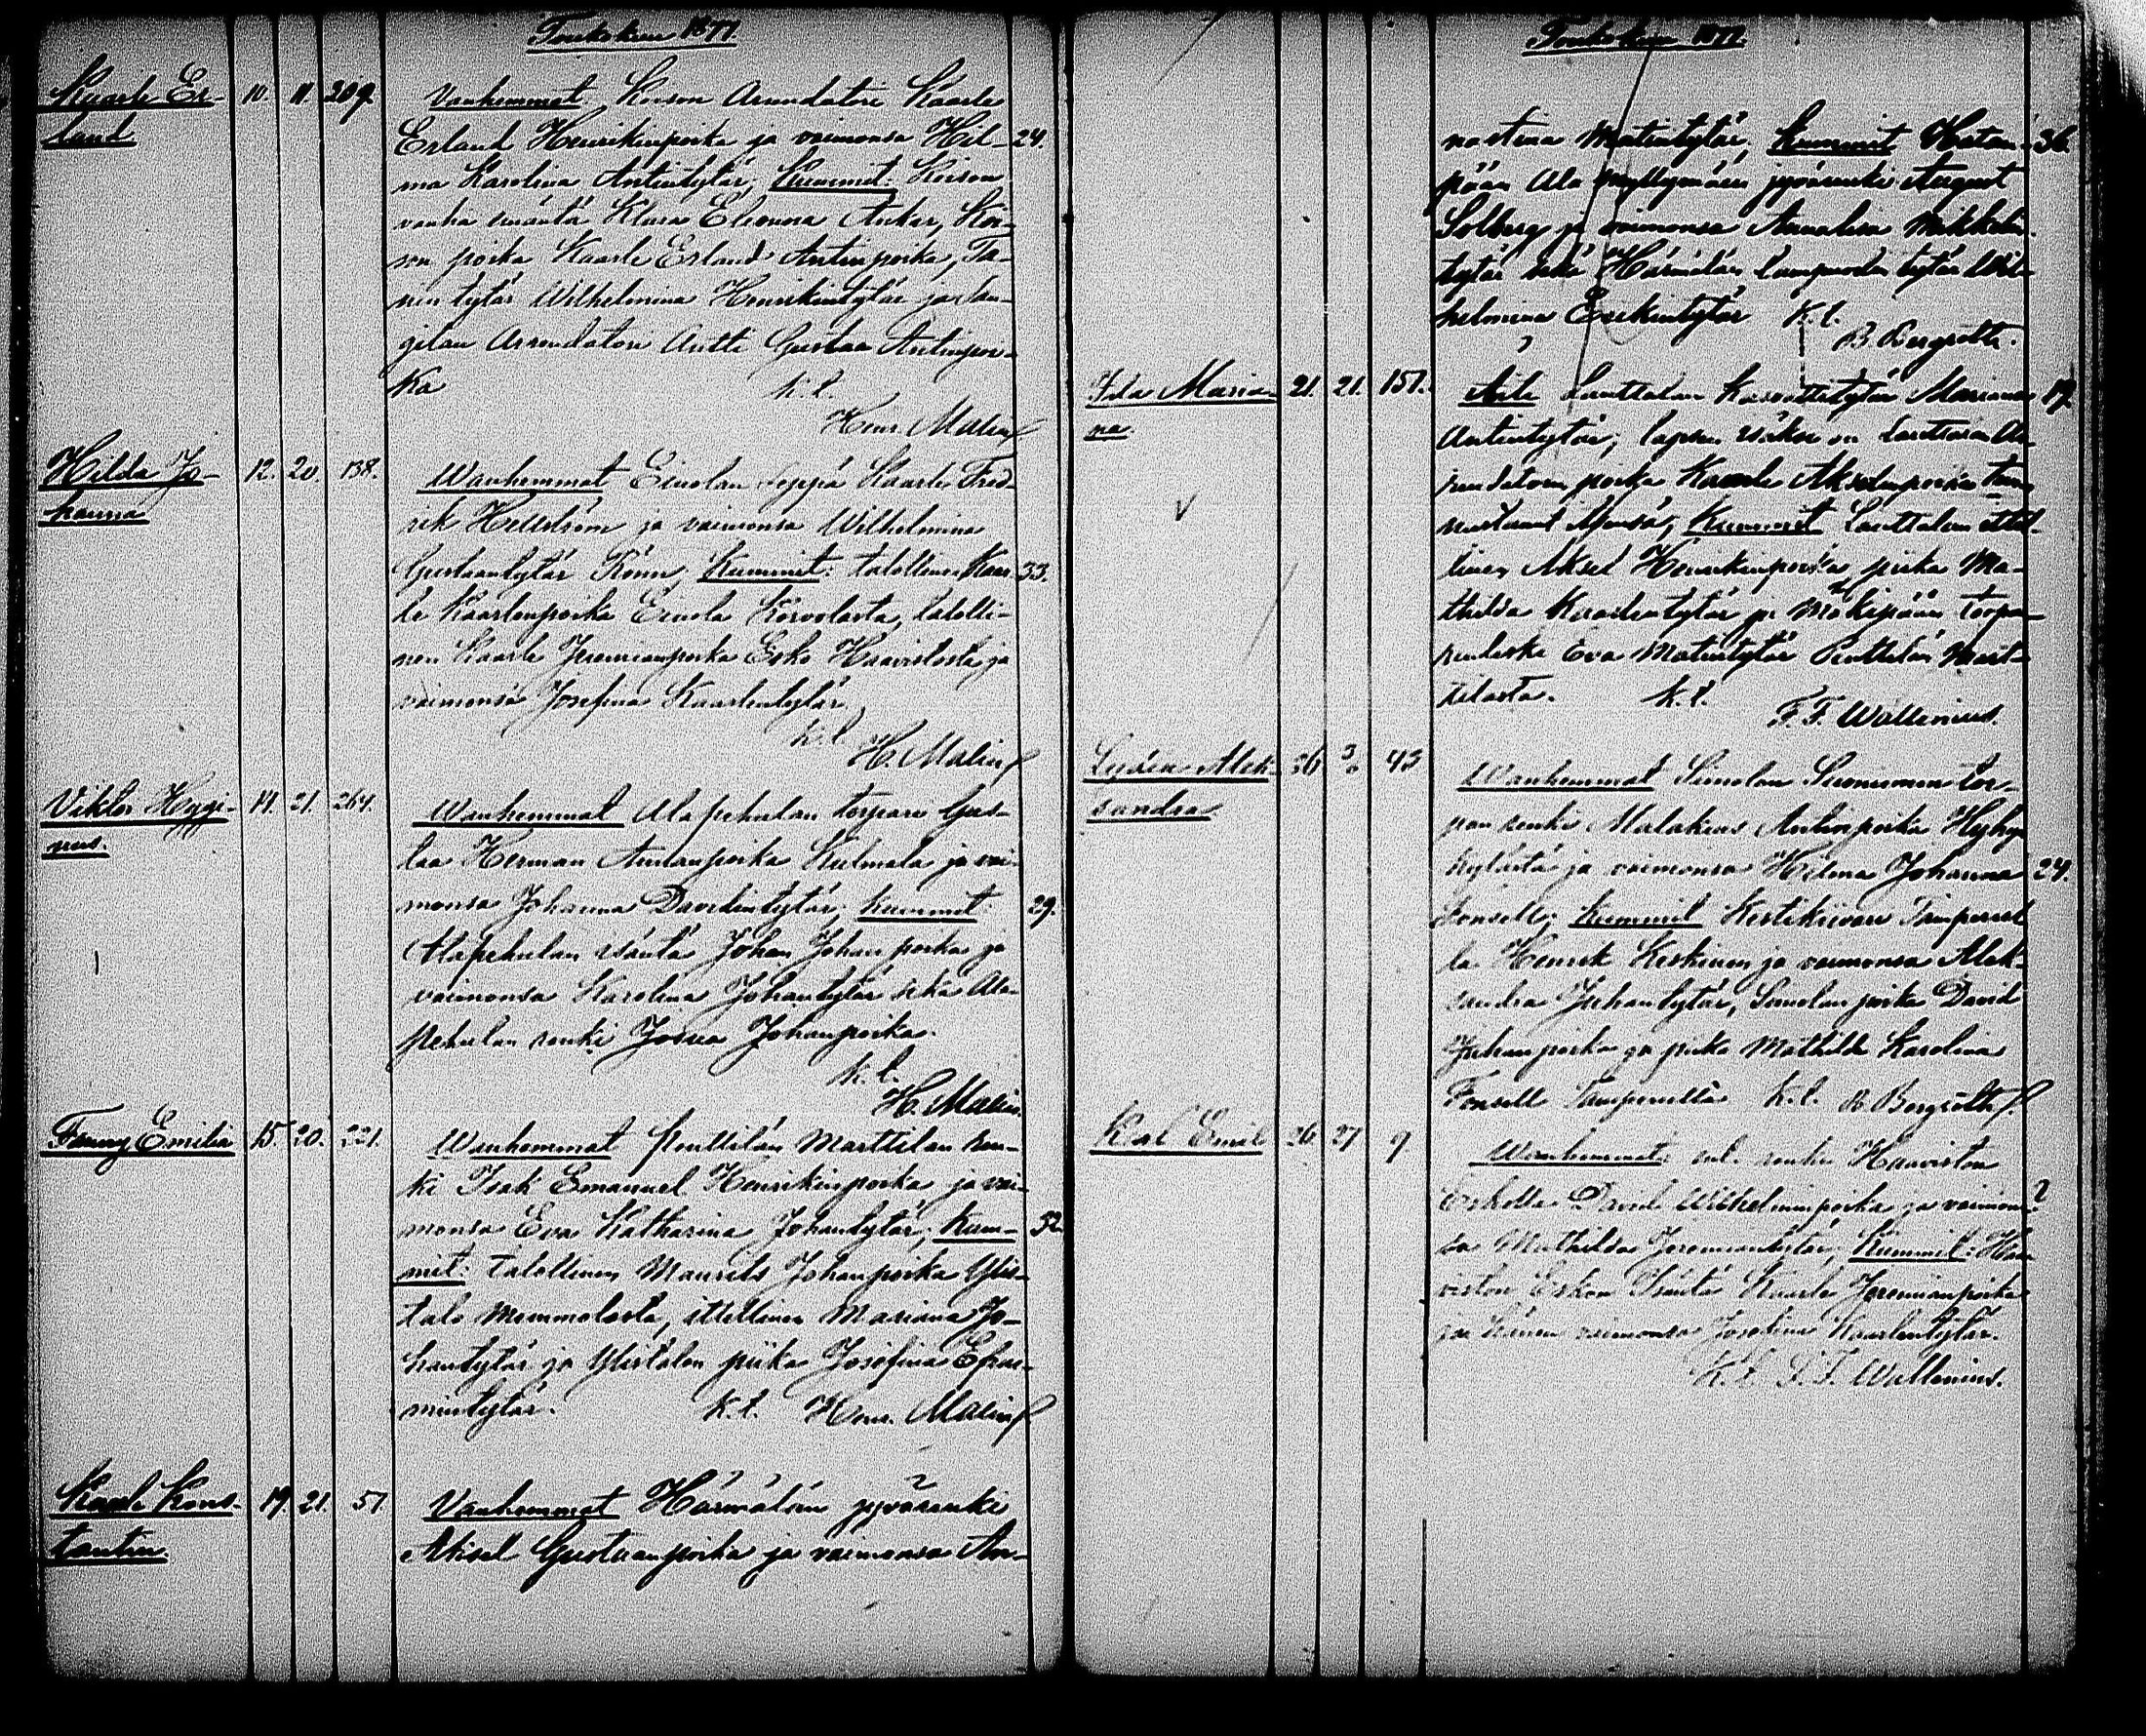 Toukokuu 1877.
Kaarle Er- 10. 11. 209. Vanhemmat, Koison Arendatori Kaarle
land Erland Henrikinpoika ja vaimonsa Hil- 24.
ma Karolina Antintytär; Kummit: Koison
vanha emäntä Klara Eleonora Anker, Koi-
son poika Kaarle Erland Antinpoika, Ta-
nen tytär Wilhelmina Henrikintytär ja
gilan Arrendatori Antti Gustaa Antinpoi-
ka k.t.
Henr. Malin
Hilda Jo- 12. 20. 138. Wanhemmat Einolan Seppä Kaarle Fred-
hanna rik Hellström ja vaimonsa Wilhelmina
Gustaantytär Könn, Kummit: talollinen Kaar- 33.
le Kaarlenpoika Einola Korvolasta, talolli-
nen Kaarle Jeremianpoika Esko Haavistosta ja
vaimonsa Josefina Kaarlentytär.
k.t.
H. Malin
Viktor Hygi- 14. 21. 264. Wanhemmat Alapehulan torpari Gus-
nus. taa Herman Antinpoika Kulmala ja vai-
monsa Johanna Davidintytär; Kummit: 29.
Alapehulan isäntä Johan Johanpoika ja
vaimonsa Karolina Johantytär sekä Ala-
pehulan renki Josua Johanpoika.
k.t.
H. Malin.
Fanny Emilia 15. 20. 221. Wanhemmat Penttilän Marttilan ren-
ki Isak Emanuel Henrikinpoika ja vai-
monsa Eva Katharina Johantytär; Kum- 32.
mit: talollinen Maurits Johanpoika Ylis-
talo Mommolasta, ittellinen Mariana Jo-
hantytär ja Ylistalon piika Josefina Efrai-
mintytär. k.t. Henr. Malin
Kaarle Kons- 19. 21. 57. Vanhemmat Härmälän jyvärenki
tantin. Aksel Gustaanpoika ja vaimonsa An-
Toukokuu 1877.
nastina Matintytär. Kummit Hatan- 36.
pään Ala myllymäen jyvärenki August
Solberg ja vaimonsa Annalisa Mikkelin-
tytär sekä Härmälän lampuodin tytär Wil-
helmina Erikintytär k.t.
B. Bergroth.
Ida Maria- 21. 21. 157. Äiti Lauttalan Kasvattitytär Mariana 19.
na. Antintytär; lapsen isäksi on Lauttalan Ar-
rendatorin poika Kaarle Akselinpoika tun-
nustanut ittensä; Kummit Lauttalan ittel-
linen Aksel Henrikinpoika, piika Ma-
thilda Kaarlentytär ja Mäkipään torpa-
rinleski Eva Matintytär Penttilän Mart-
tilasta. k.t.
F. F. Wallenius.
Lydia Alek- 26 3/6 45 Wanhemmat Simolan Suoniemen tor-
sandra pan renki Malakias Antinpoika Hyhy-
kylästä ja vaimonsa Hilma Johanna 24.
Fonsell; Kummit Kestikiivari Tampereel-
la Henrik Keskinen ja vaimonsa Alek-
sandra Juhantytär, Simolan poika David
Juhanpoika ja piika Mathilda Karolina
Fonsell Tampereella k.t. B. Bergroth
Karl Emil 26 27 9 Wanhemmat: ent. renki Haaviston
Eskolla David Wilhelminpoika ja vaimon- ?
sa Mathilda Jeremiantytär; Kummit: Haa-
viston Eskon Isäntä Kaarle Jeremianpoika
ja hänen vaimonsa Josefina Kaarlentytär.
K.t. F. F. Wallenius.